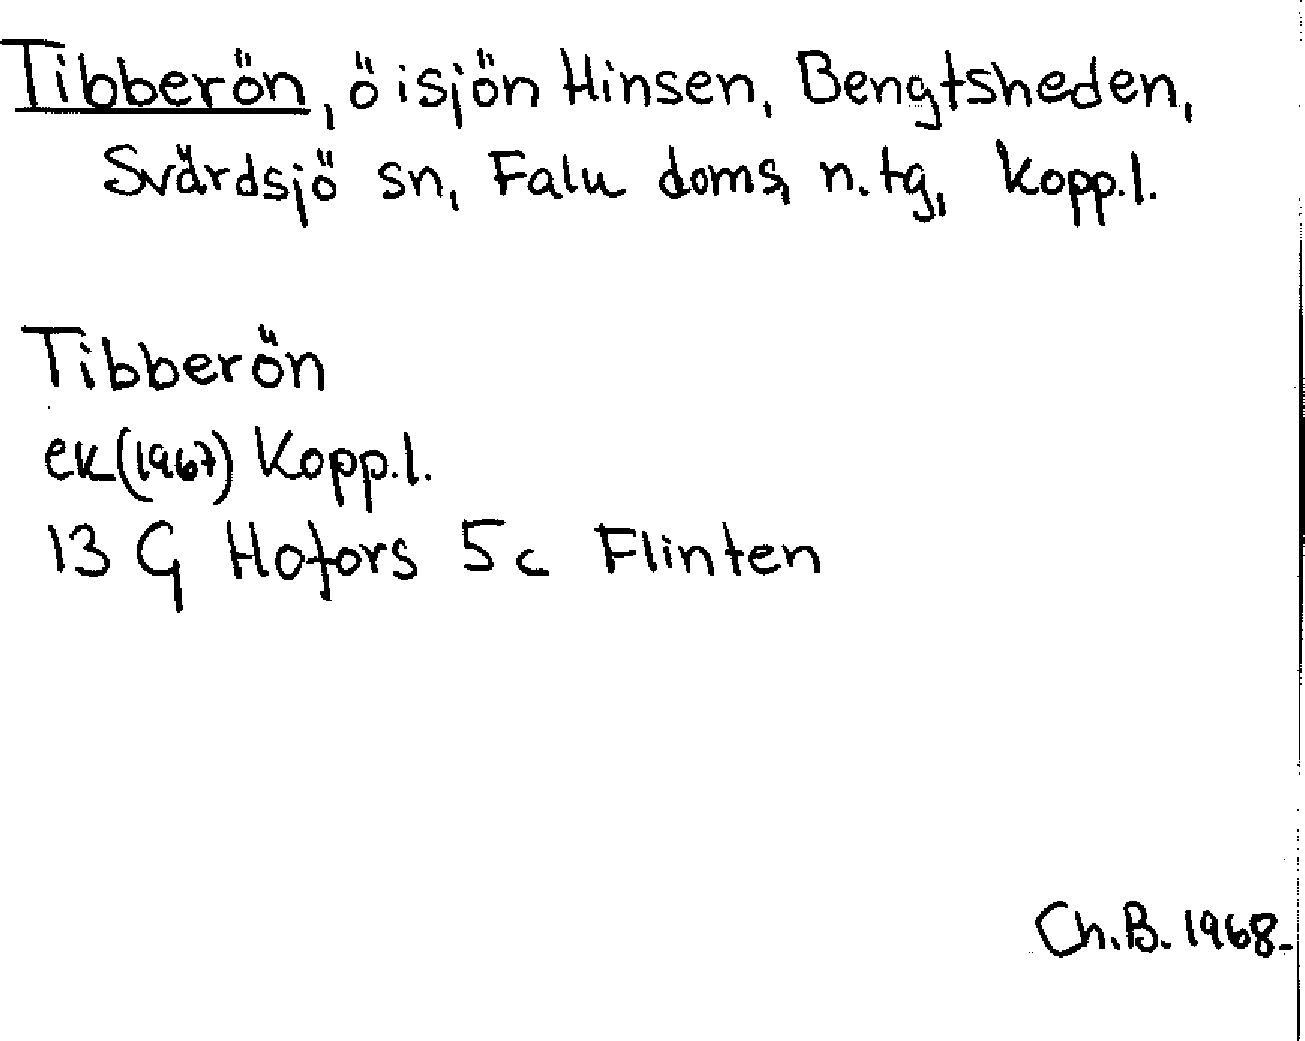 Tibberön, ö i sjön Hinsen, Bengtsheden,
Svärdsjö sn, Falu doms, n. tg, Kopp.l.
Tibberön
ek (1967) Kopp.l.
13 G Hofors 5c Flinten
Ch.B. 1968.